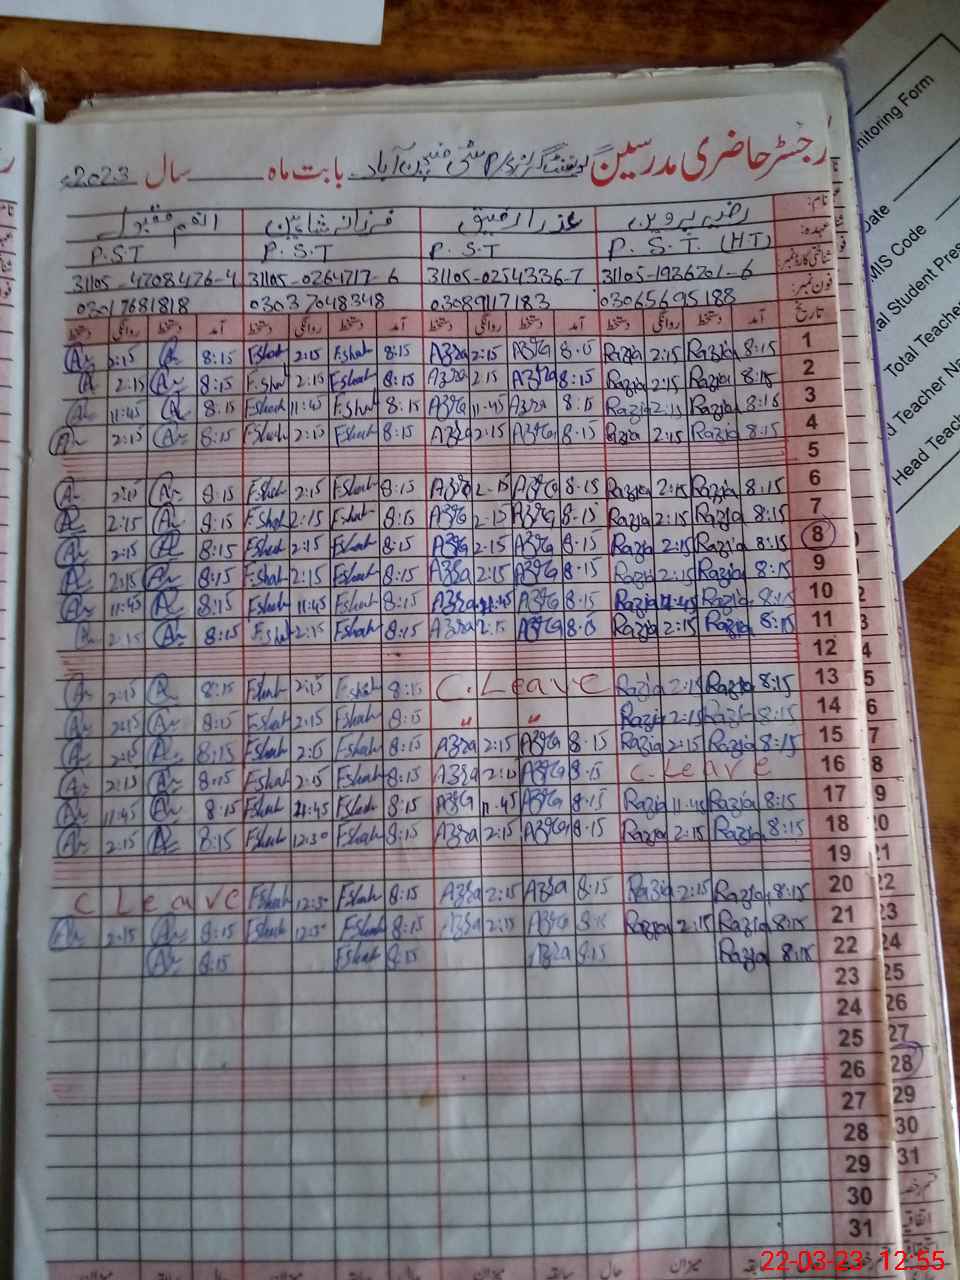 رجسٹر حاضری مدرسین بابت ماہ سال 2023ء
نام: رضیہ پروین عذرا رفیق فرزانہ شاہین
عہدہ: P.S.T. (H.T) P.S.T P.S.T P.S.T
شناختی کارڈ نمبر 31105-1926201-6 31105-0254336-7 31105-0264717-6 31105-4708476-4
فون نمبر: 03065695188 03089117183 03037048348 03017681818
تاریخ آمد دستخط روانگی دستخط آمد دستخط روانگی دستخط آمد دستخط روانگی دستخط آمد دستخط روانگی دستخط
1 8:15 Razia 2:15 Razia 8:15 Azra 2:15 Azra 8:15 F.Shah 2:15 F.Shah 8:15 2:15
2 8:15 Razia 2:15 Razia 8:15 Azra 2:15 Azra 8:15 F.Shah 2:15 F.Shah 8:15 2:15
3 8:15 Razia 2:15 Razia 8:15 Azra 11:45 Azra 8:15 F.Shah 11:45 F.Shah 8:15 11:45
4 8:15 Razia 2:15 Razia 8:15 Azra 2:15 Azra 8:15 F.Shah 2:15 F.Shah 8:15 2:15
5
6 8:15 Razia 2:15 Razia 8:15 Azra 2:15 Azra 8:15 F.Shah 2:15 F.Shah 8:15 2:15
7 8:15 Razia 2:15 Razia 8:15 Azra 2:15 Azra 8:15 F.Shah 2:15 F.Shah 8:15 2:15
8 8:15 Razia 2:15 Razia 8:15 Azra 2:15 Azra 8:15 F.Shah 2:15 F.Shah 8:15 2:15
9 8:15 Razia 2:15 Razia 8:15 Azra 2:15 Azra 8:15 F.Shah 2:15 F.Shah 8:15 2:15
10 8:15 Razia 11:45 Razia 8:15 Azra 11:45 Azra 8:15 F.Shah 11:45 F.Shah 8:15 11:45
11 8:15 Razia 2:15 Razia 8:15 Azra 2:15 Azra 8:15 F.Shah 2:15 F.Shah 8:15 2:15
12
13 8:15 Razia 2:15 Razia C. Leave 8:15 F.Shah 2:15 F.Shah 8:15 2:15
14 8:15 Razia 2:15 Razia " " 8:15 F.Shah 2:15 F.Shah 8:15 2:15
15 8:15 Razia 2:15 Razia 8:15 Azra 2:15 Azra 8:15 F.Shah 2:15 F.Shah 8:15 2:15
16 C. Leave 8:15 Azra 2:15 Azra 8:15 F.Shah 2:15 F.Shah 8:15 2:15
17 8:15 Razia 11:45 Razia 8:15 Azra 11:45 Azra 8:15 F.Shah 11:45 F.Shah 8:15 11:45
18 8:15 Razia 2:15 Razia 8:15 Azra 2:15 Azra 8:15 F.Shah 12:30 F.Shah 8:15 2:15
19
20 8:15 Razia 2:15 Razia 8:15 Azra 2:15 Azra 8:15 F.Shah 12:30 F.Shah C Leave
21 8:15 Razia 2:15 Razia 8:15 Azra 2:15 Azra 8:15 F.Shah 12:30 F.Shah 8:15 2:15
22 8:15 Razia 8:15 Azra 8:15 F.Shah 8:15
23
24
25
26
27
28
29
30
31
nitoring Form
Date
MIS Code
al Student Pres
Total Teache
d Teacher Na
Head Teach
22-03-23 12:55